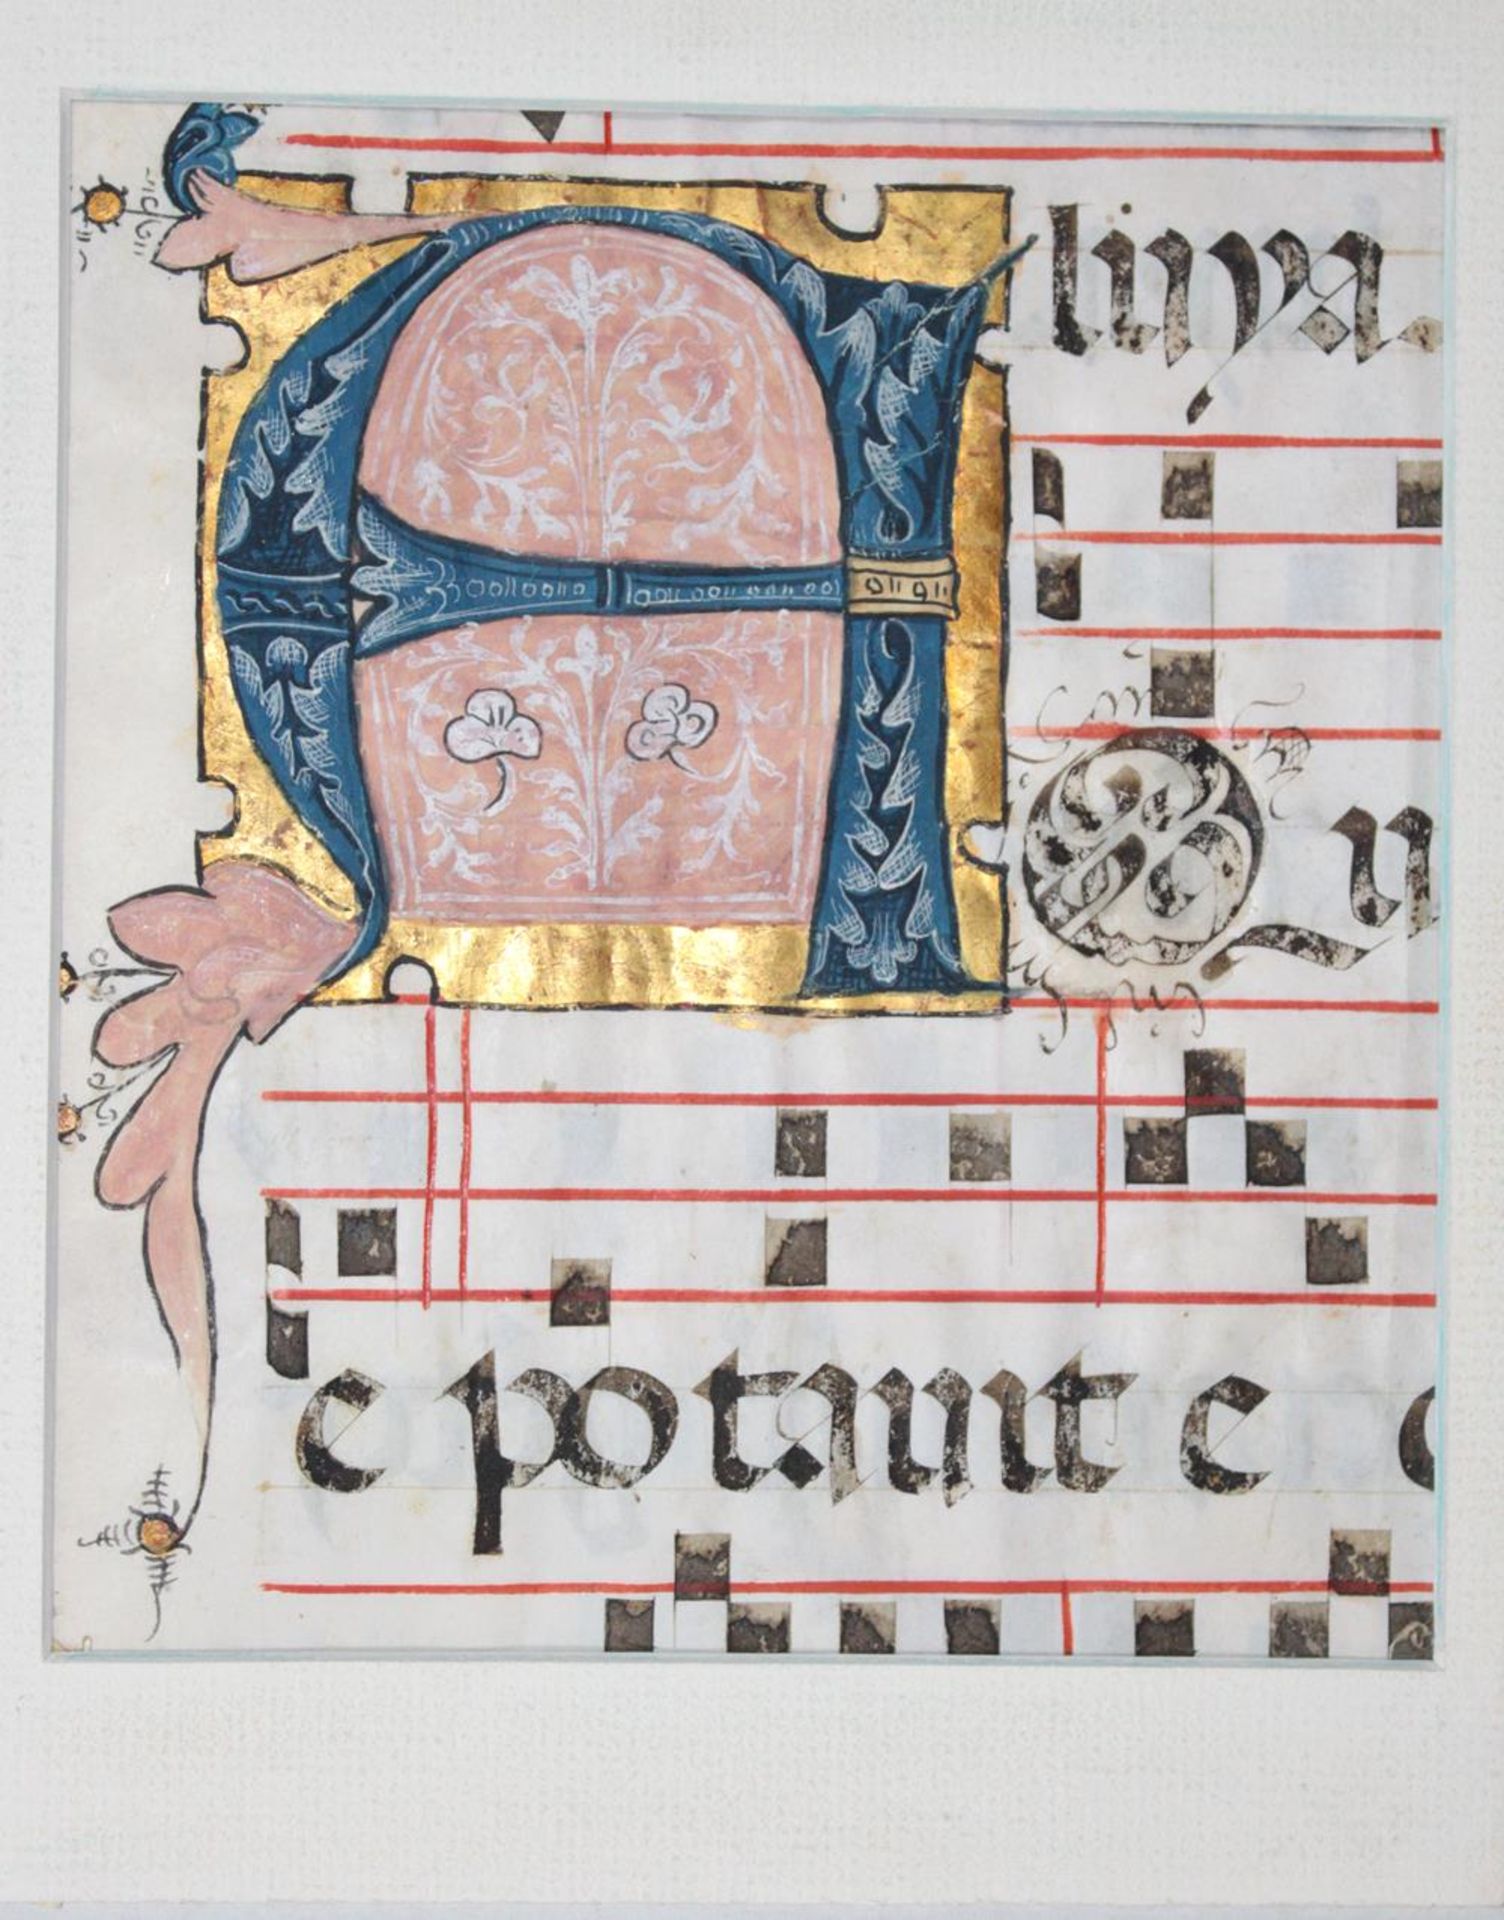 A liīya.
Qu
e potauit e